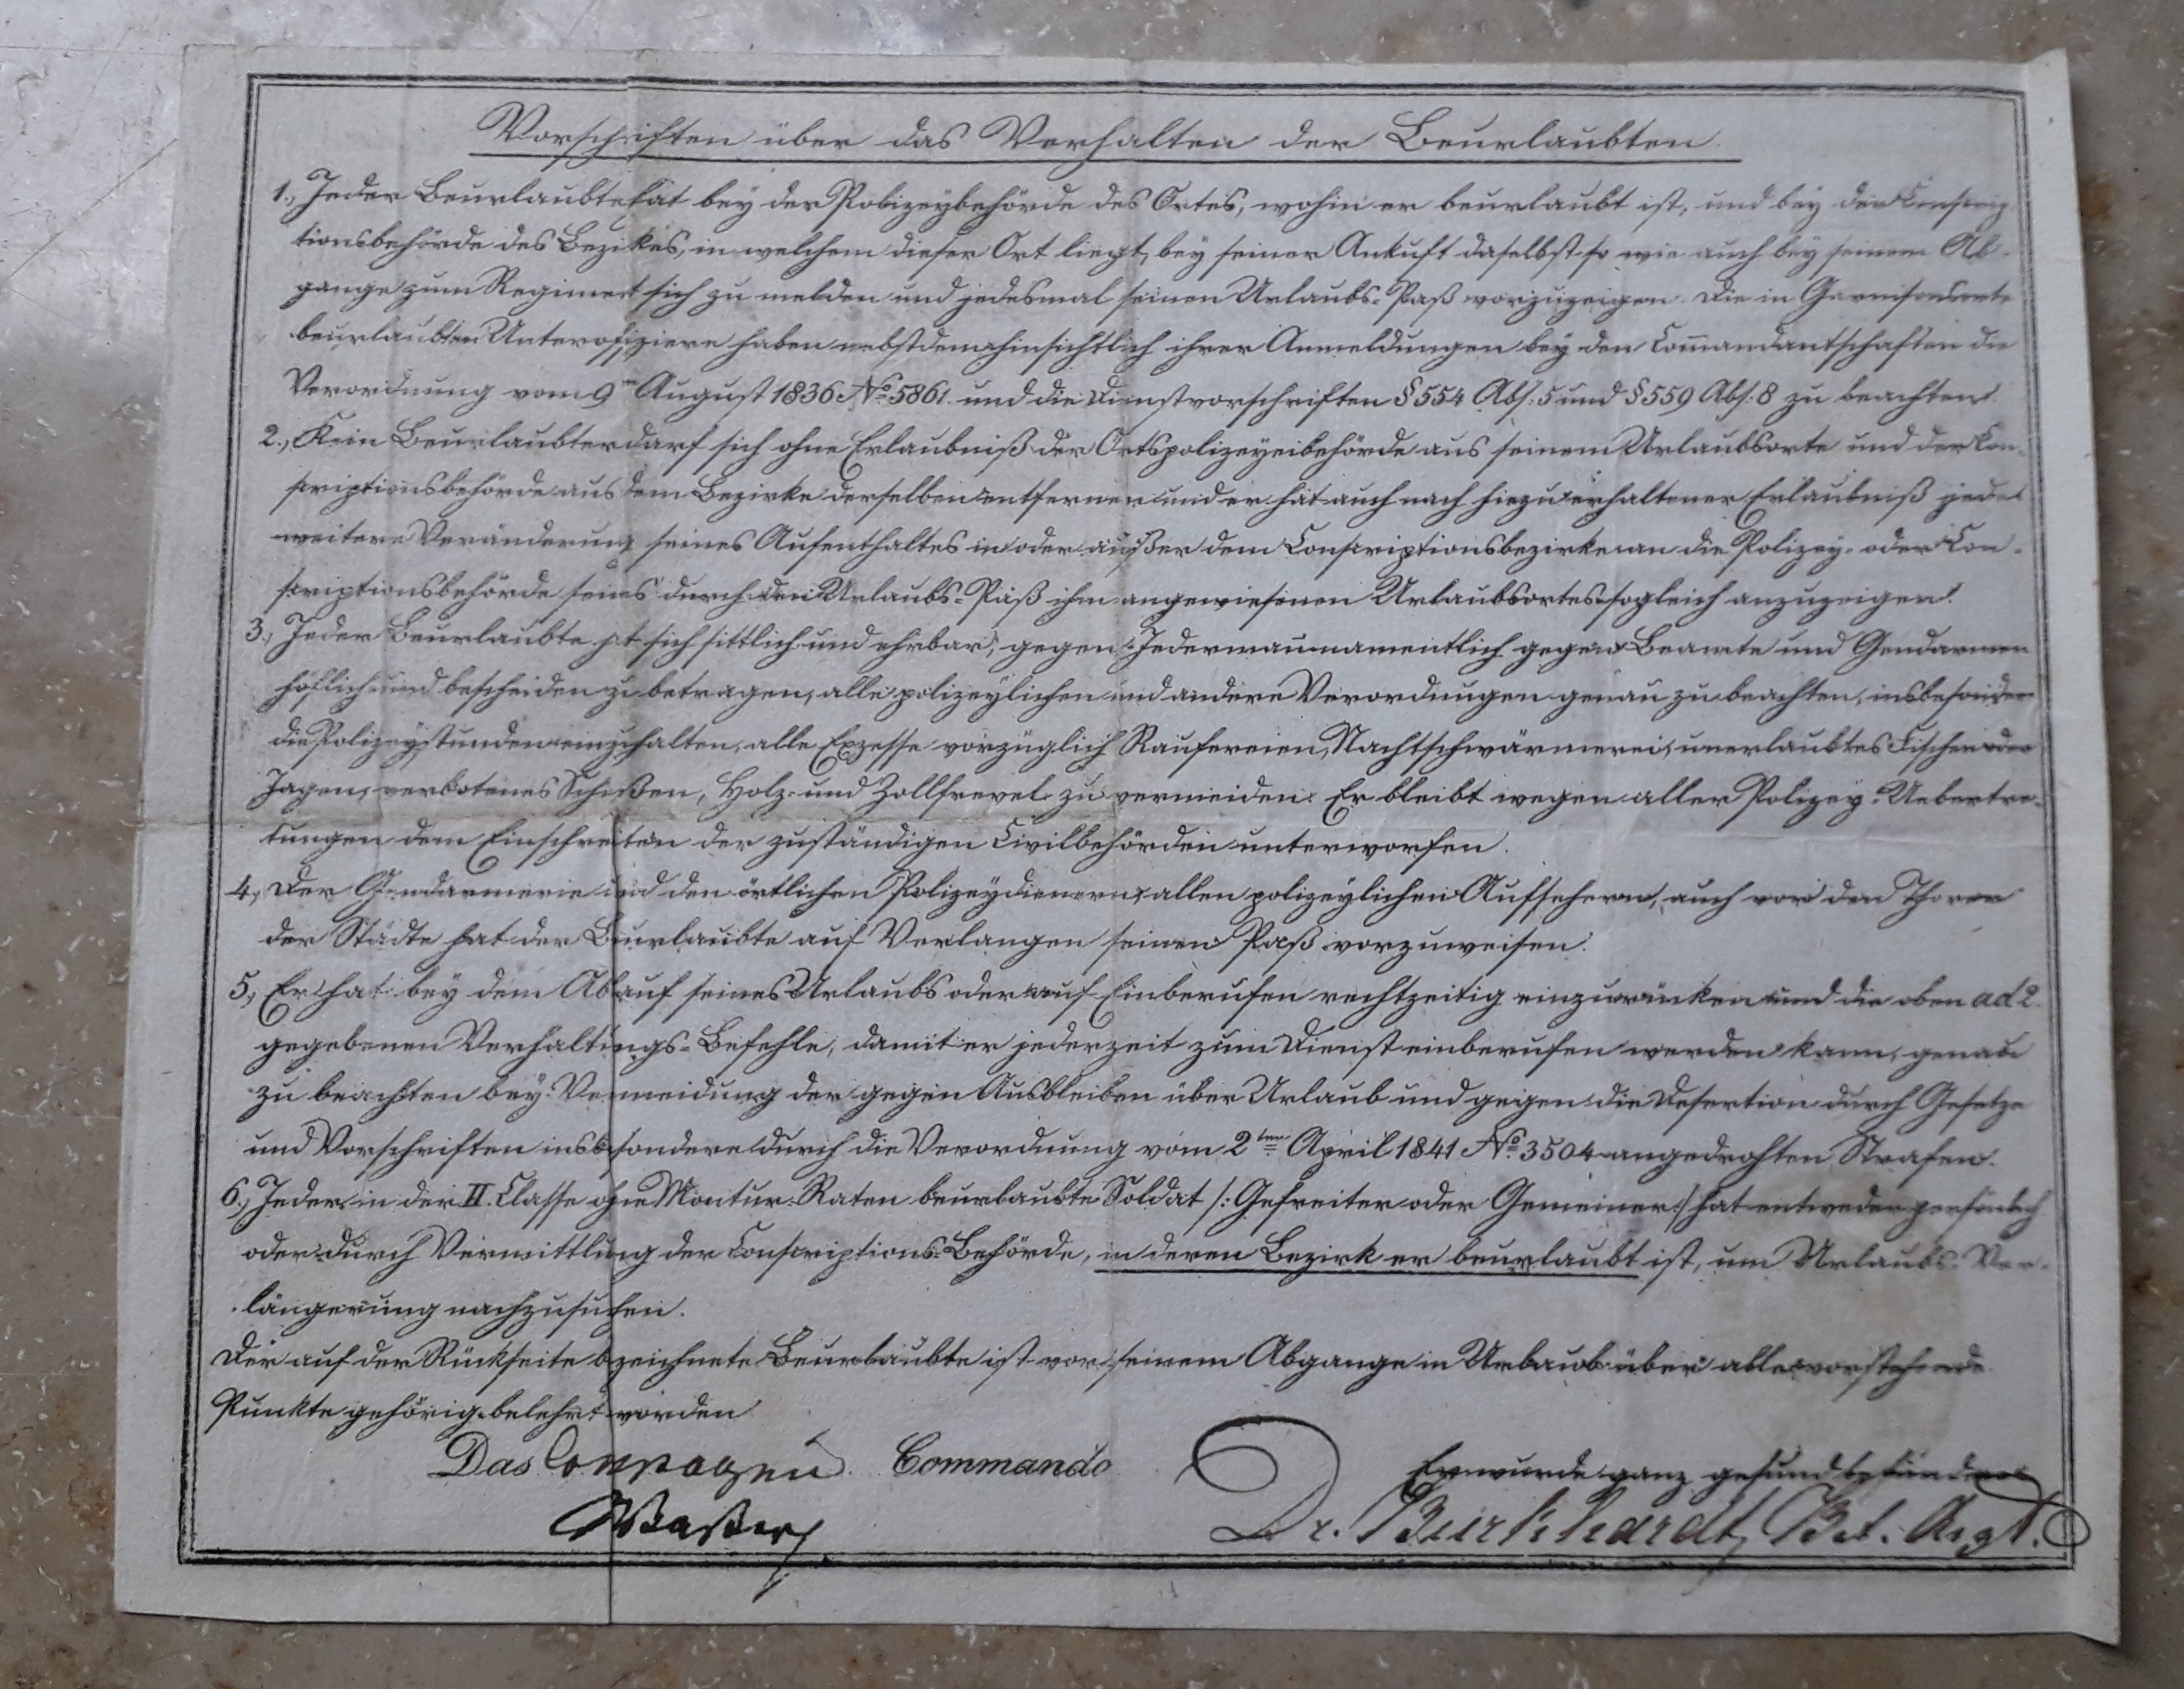 Vorschriften über das Verhalten der Beurlaubten.
1., Jeder Beurlaubte hat bey der Polizeybehörde des Ortes, wohin er beurlaubt ist, und bey der Conscrip
tionsbehörde des Bezirkes, in welchem dieser Ort liegt, bey seiner Ankuft daselbst so wie auch bey seinem Ab-
gange zum Regiment sich zu melden und jedesmal seinen Urlaubs-Paß vorzuzeigen. Die in Garnisonsorte
beurlaubten Unteroffiziere haben nebstdem hinsichtlich ihrer Anmeldungen bey den Com̄andantschaften die
Verordnung vom 9ten August 1836 No. 5861. und die Dienstvorschriften § 554 Abs. 5 und § 559 Abs. 8 zu beachten.
2., Kein Beurlaubter darf sich ohne Erlaubniß der Ortspolizeyeibehörde aus seinem Urlaubsorte und der Con-
scriptionsbehörde aus dem Bezirke derselben entfernen und er hat auch nach hiezu erhaltener Erlaubniß jede
weitere Veränderung seines Aufenthaltes in oder außer dem Conscriptionsbezirke an die Polizey- oder Con-
scriptionsbehörde seines durch den Urlaubs-Paß ihm angewiesenen Urlaubsortes sogleich anzuzeigen.
3., Jeder Beurlaubte hat sich sittlich und ehrbar, gegen Jedermann namentlich gegen Beamte und Gendarmen
höflich und bescheiden zu betragen, alle polizeylichen und andere Verordnungen genau zu beachten, insbesondere
die Polizeystunden einzuhalten, alle Exzesse vorzüglich Raufereien, Nachtschwärmerei, unerlaubtes Fischen oder
Jagen, verbotenes Schißen, Holz- und Zollfrevel zu vermeiden. Er bleibt wegen aller Polizey-Uebertre-
tungen dem Einschreiten der zuständigen Civilbehörden unterworfen.
4., Der Gendarmerie und den örtlichen Polizeydienern, allen polizeylichen Aufsehern, auch vor den Thoren
der Städte hat der Beurlaubte auf Verlangen seinen Paß vorzuweisen.
5., Er hat bey dem Ablauf seines Urlaubs oder auf Einberufen rechtzeitig einzurücken und die oben ad 2.
gegebenen Verhaltungs-Befehle, damit er jederzeit zum Dienst einberufen werden kann, genau
zu beachten bey Vermeidung der gegen Ausbleiben über Urlaub und gegen die Desertion durch Gesetze
und Vorschriften insbesondere durch die Verordnung vom 2ten April 1841 No. 3504 angedrohten Strafen.
6., Jeder in der II. Classe ohne Montur-Raten beurlaubte Soldat /: Gefreiter oder Gemeiner :/ hat entweder persönlich
oder durch Vermittlung der Conscriptions-Behörde, in deren Bezirk er beurlaubt ist, um Urlaubs-Ver-
längerung nachzusuchen.
Der auf der Rückseite bezeichnete Beurlaubte ist vor seinem Abgange in Urlaub über alle vorstehende
Punkte gehörig belehrt worden.
Das Compagnie Commando
Er wurde ganz gesund befunden
Dr. Burkhardt, Bat. Arzt.